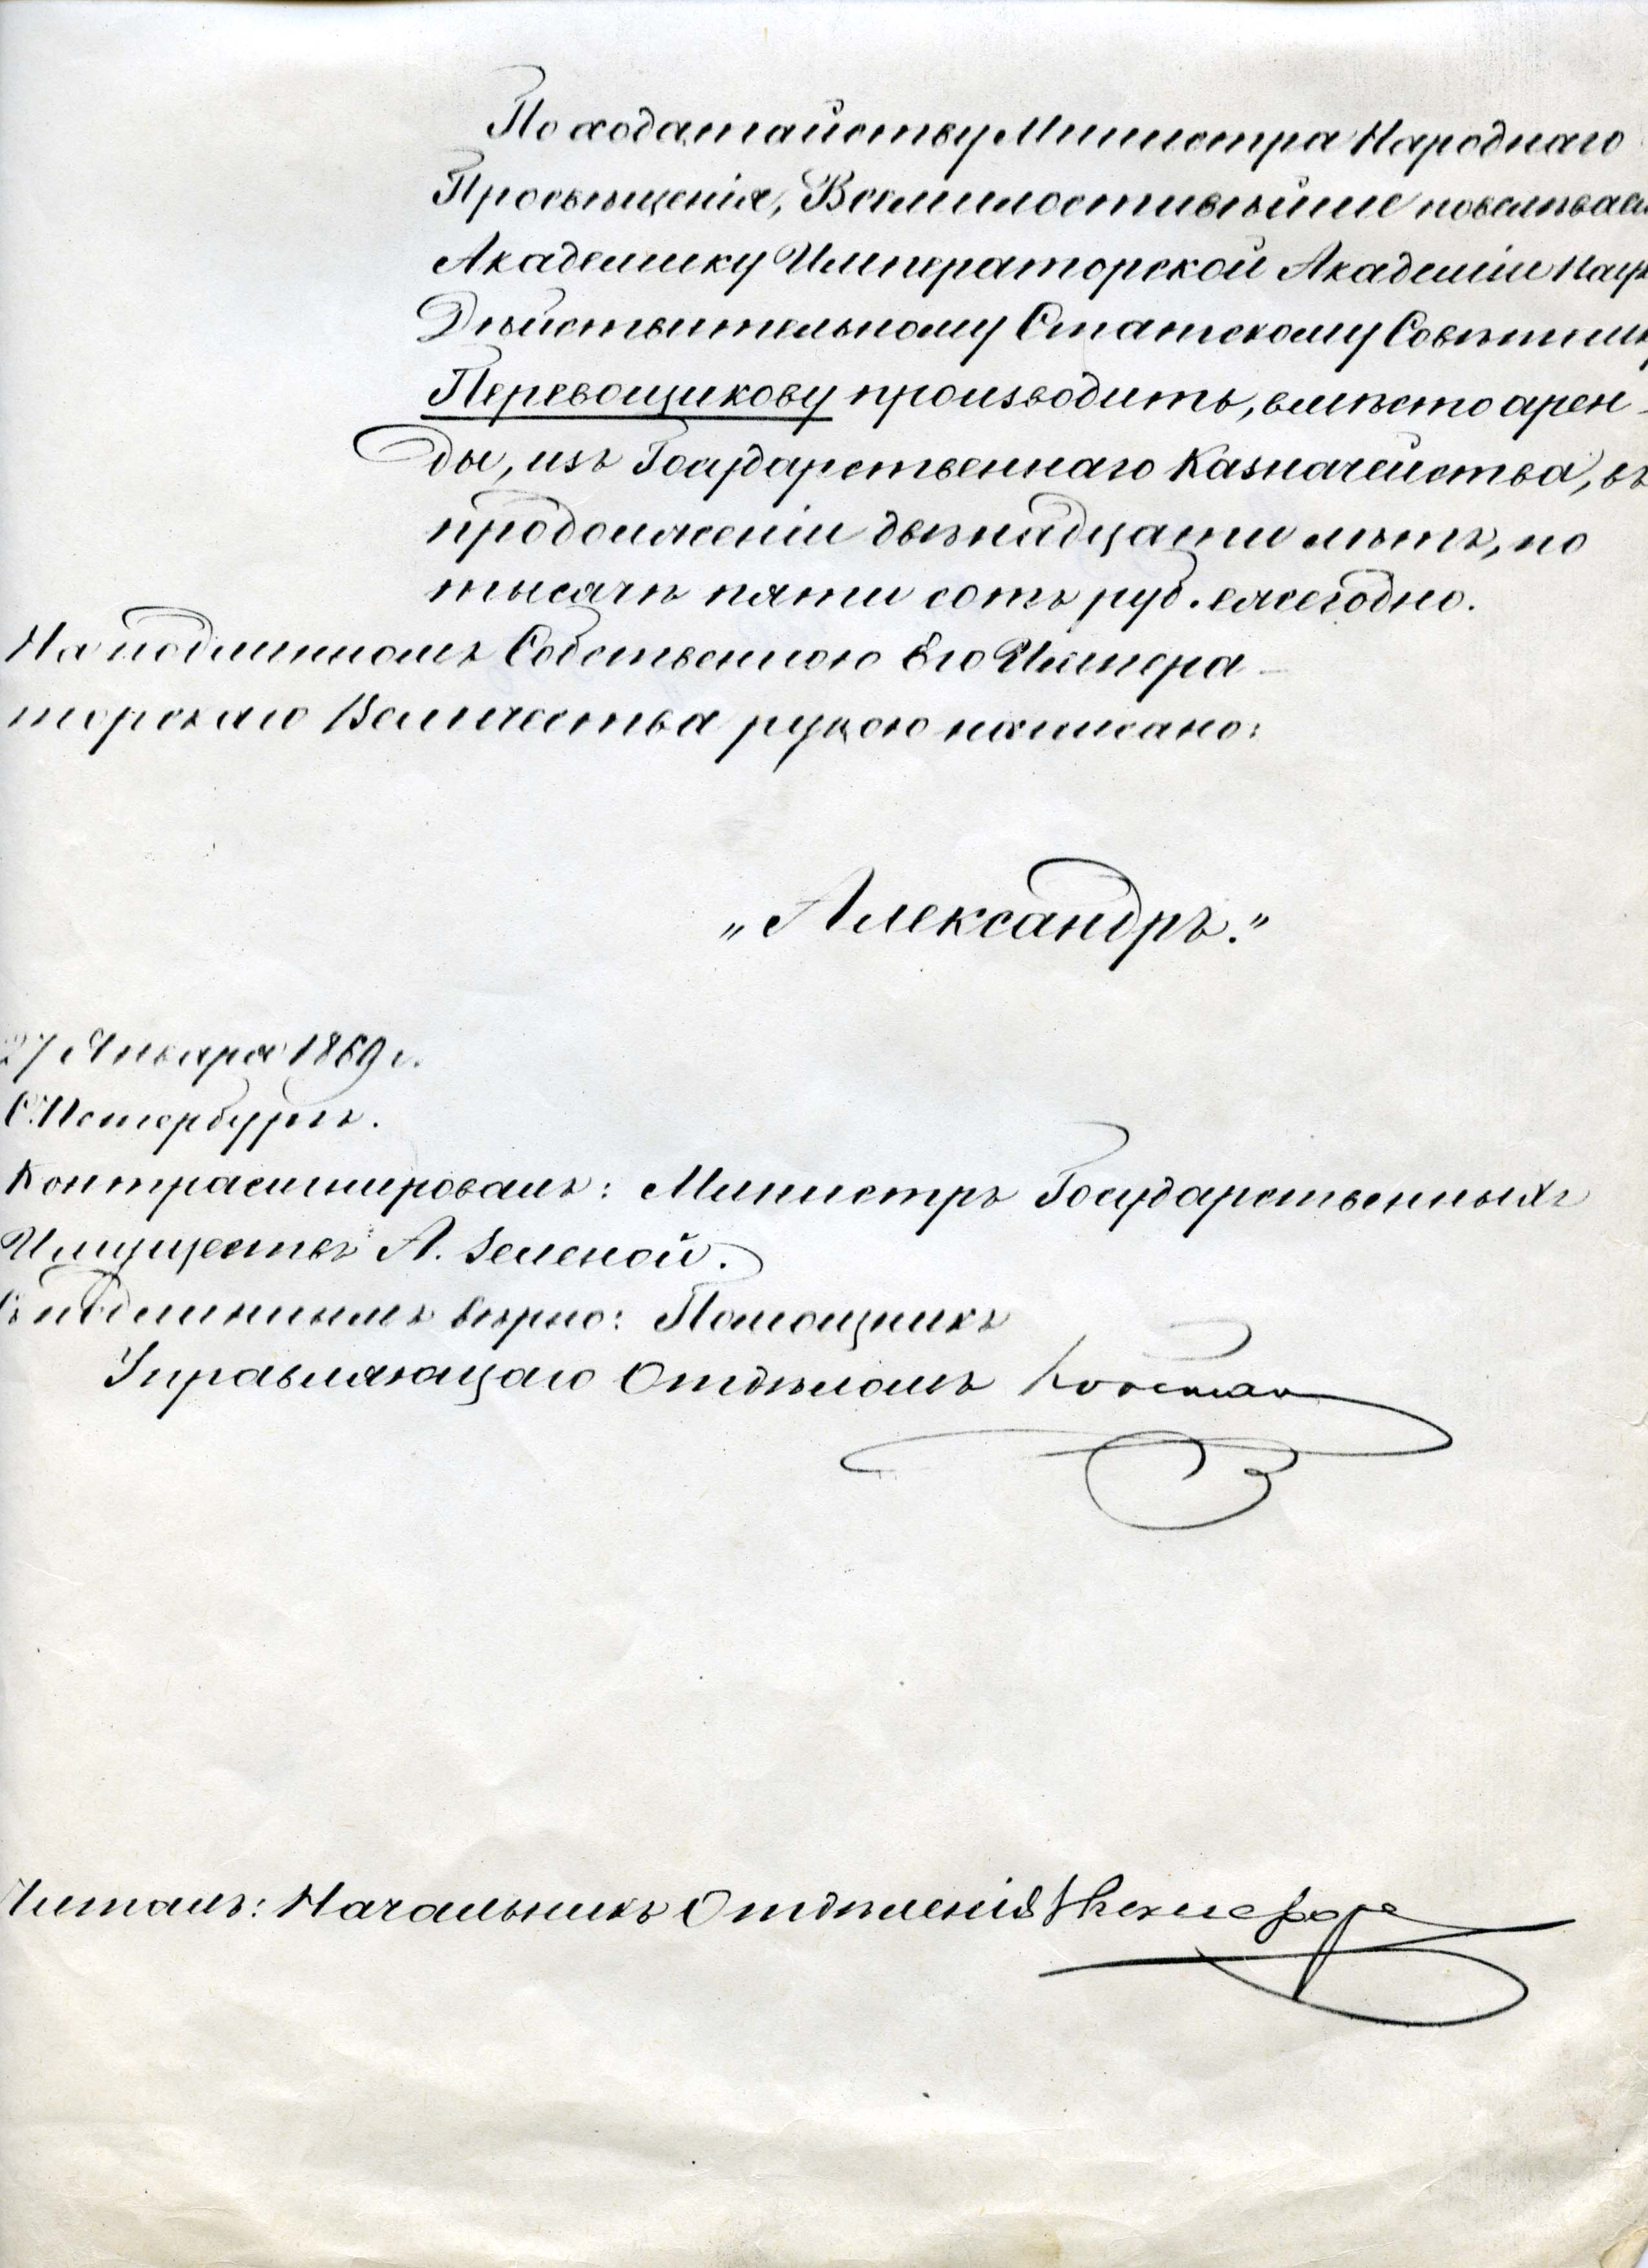 По ходатайству Министра Народнаго
Просвѣщенія, Всемилостивѣйше повелѣваемъ
Академику Императорской Академіи Наукъ
Дѣйствительному Статскому Совѣтнику
Перевощикову производить, вмѣсто арен-
ды, изъ Государственнаго Казначейства, въ
продолженіи двѣнадцати лѣтъ, по
тысячѣ пяти сотъ руб. ежегодно.
На подлинномъ Собственною Его Импера-
торскаго Величества рукою написано:
„Александръ."
27 Января 1869 г.
С.Петербургъ.
Контрасигнировалъ: Министръ Государственныхъ
Имуществъ А. Зеленой.
Съ подлиннымъ вѣрно: Помощникъ
Управляющаго Отдѣломъ
Читалъ: Начальникъ Отдѣленія